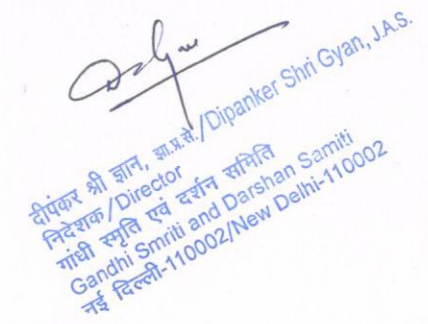 दीपंकर श्री ज्ञान, झा.प्र.से./Dipanker Shri Gyan, J.A.S.
निदेशक/Director
गांधी स्मृति एवं दर्शन समिति
Gandhi Smriti and Darshan Samiti
नई दिल्ली-110002/New Delhi-110002